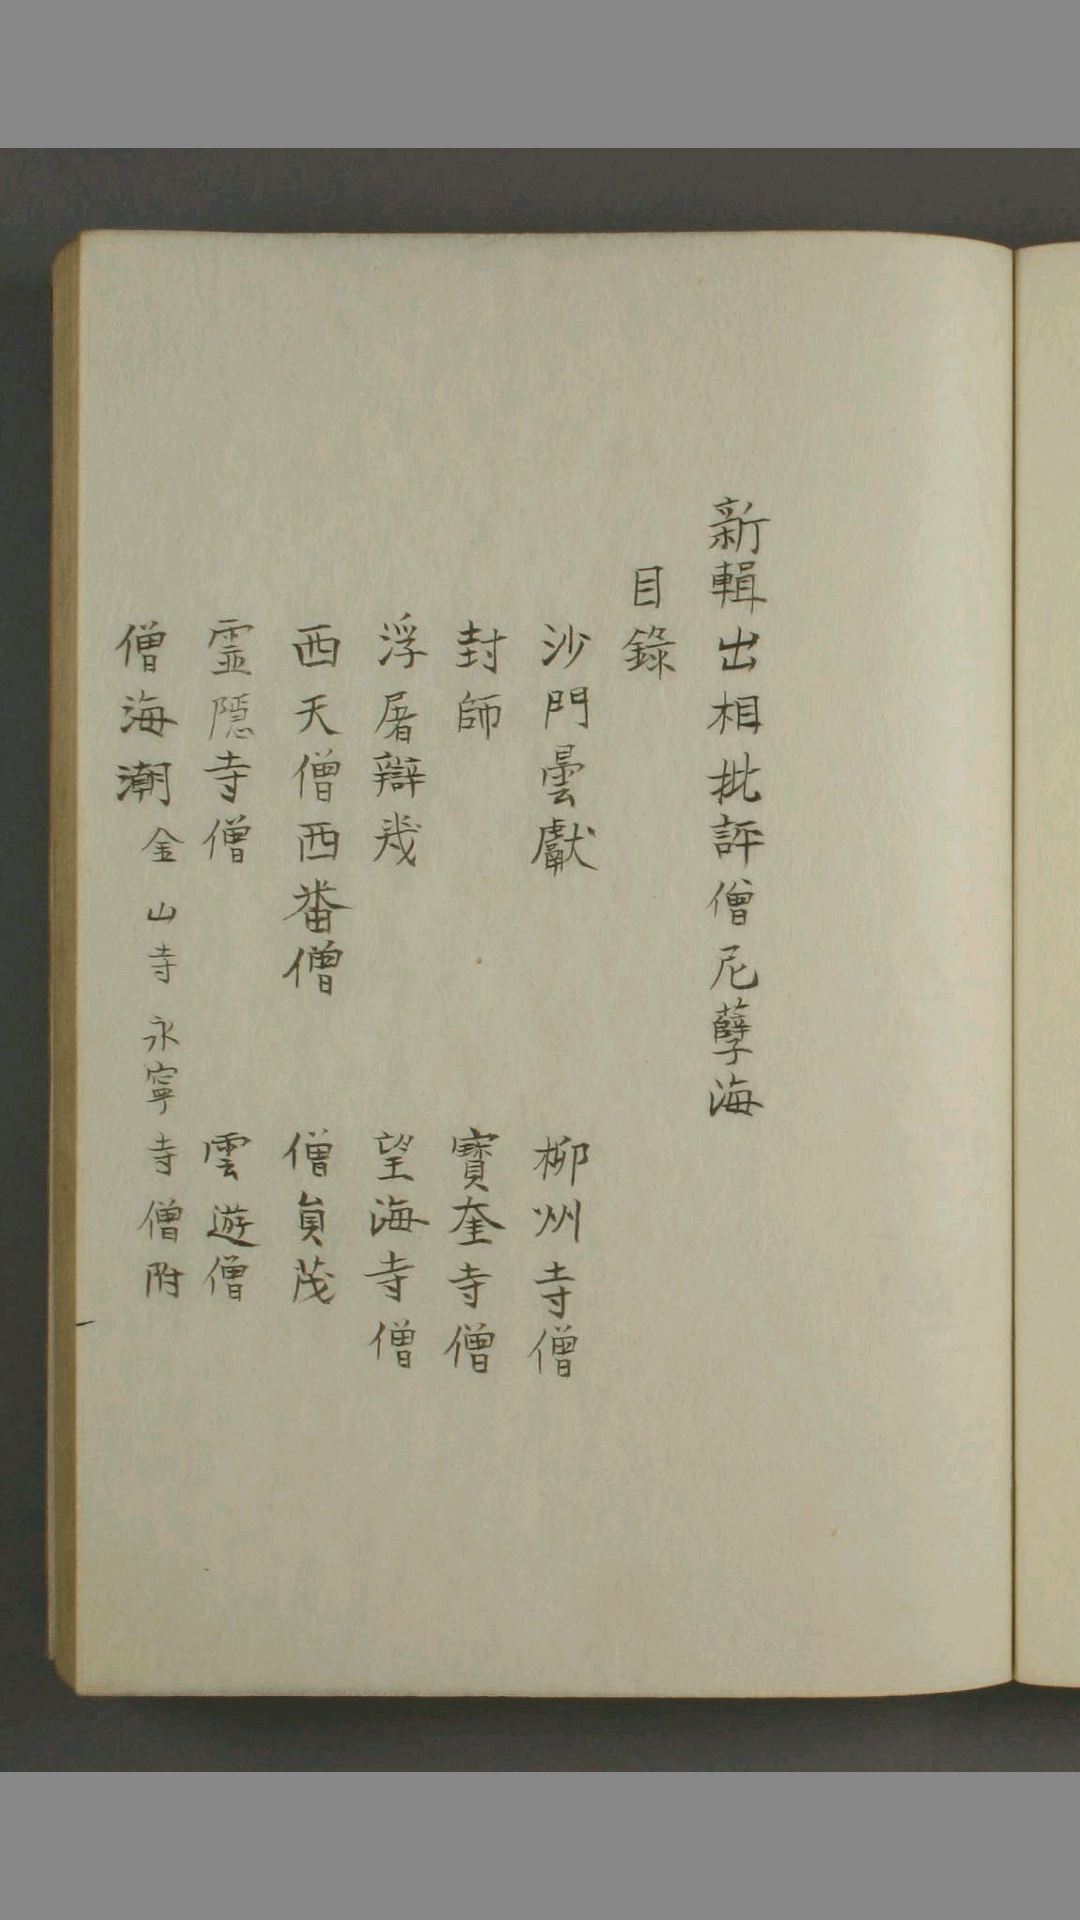 新輯出相批評僧尼孽海
目錄
沙門曇獻　柳州寺僧
封師　寶奎寺僧
浮屠辯幾　望海寺僧
西天僧西番僧　僧員茂
霊隱寺僧　雲遊僧
僧海潮金山寺永寧寺僧附